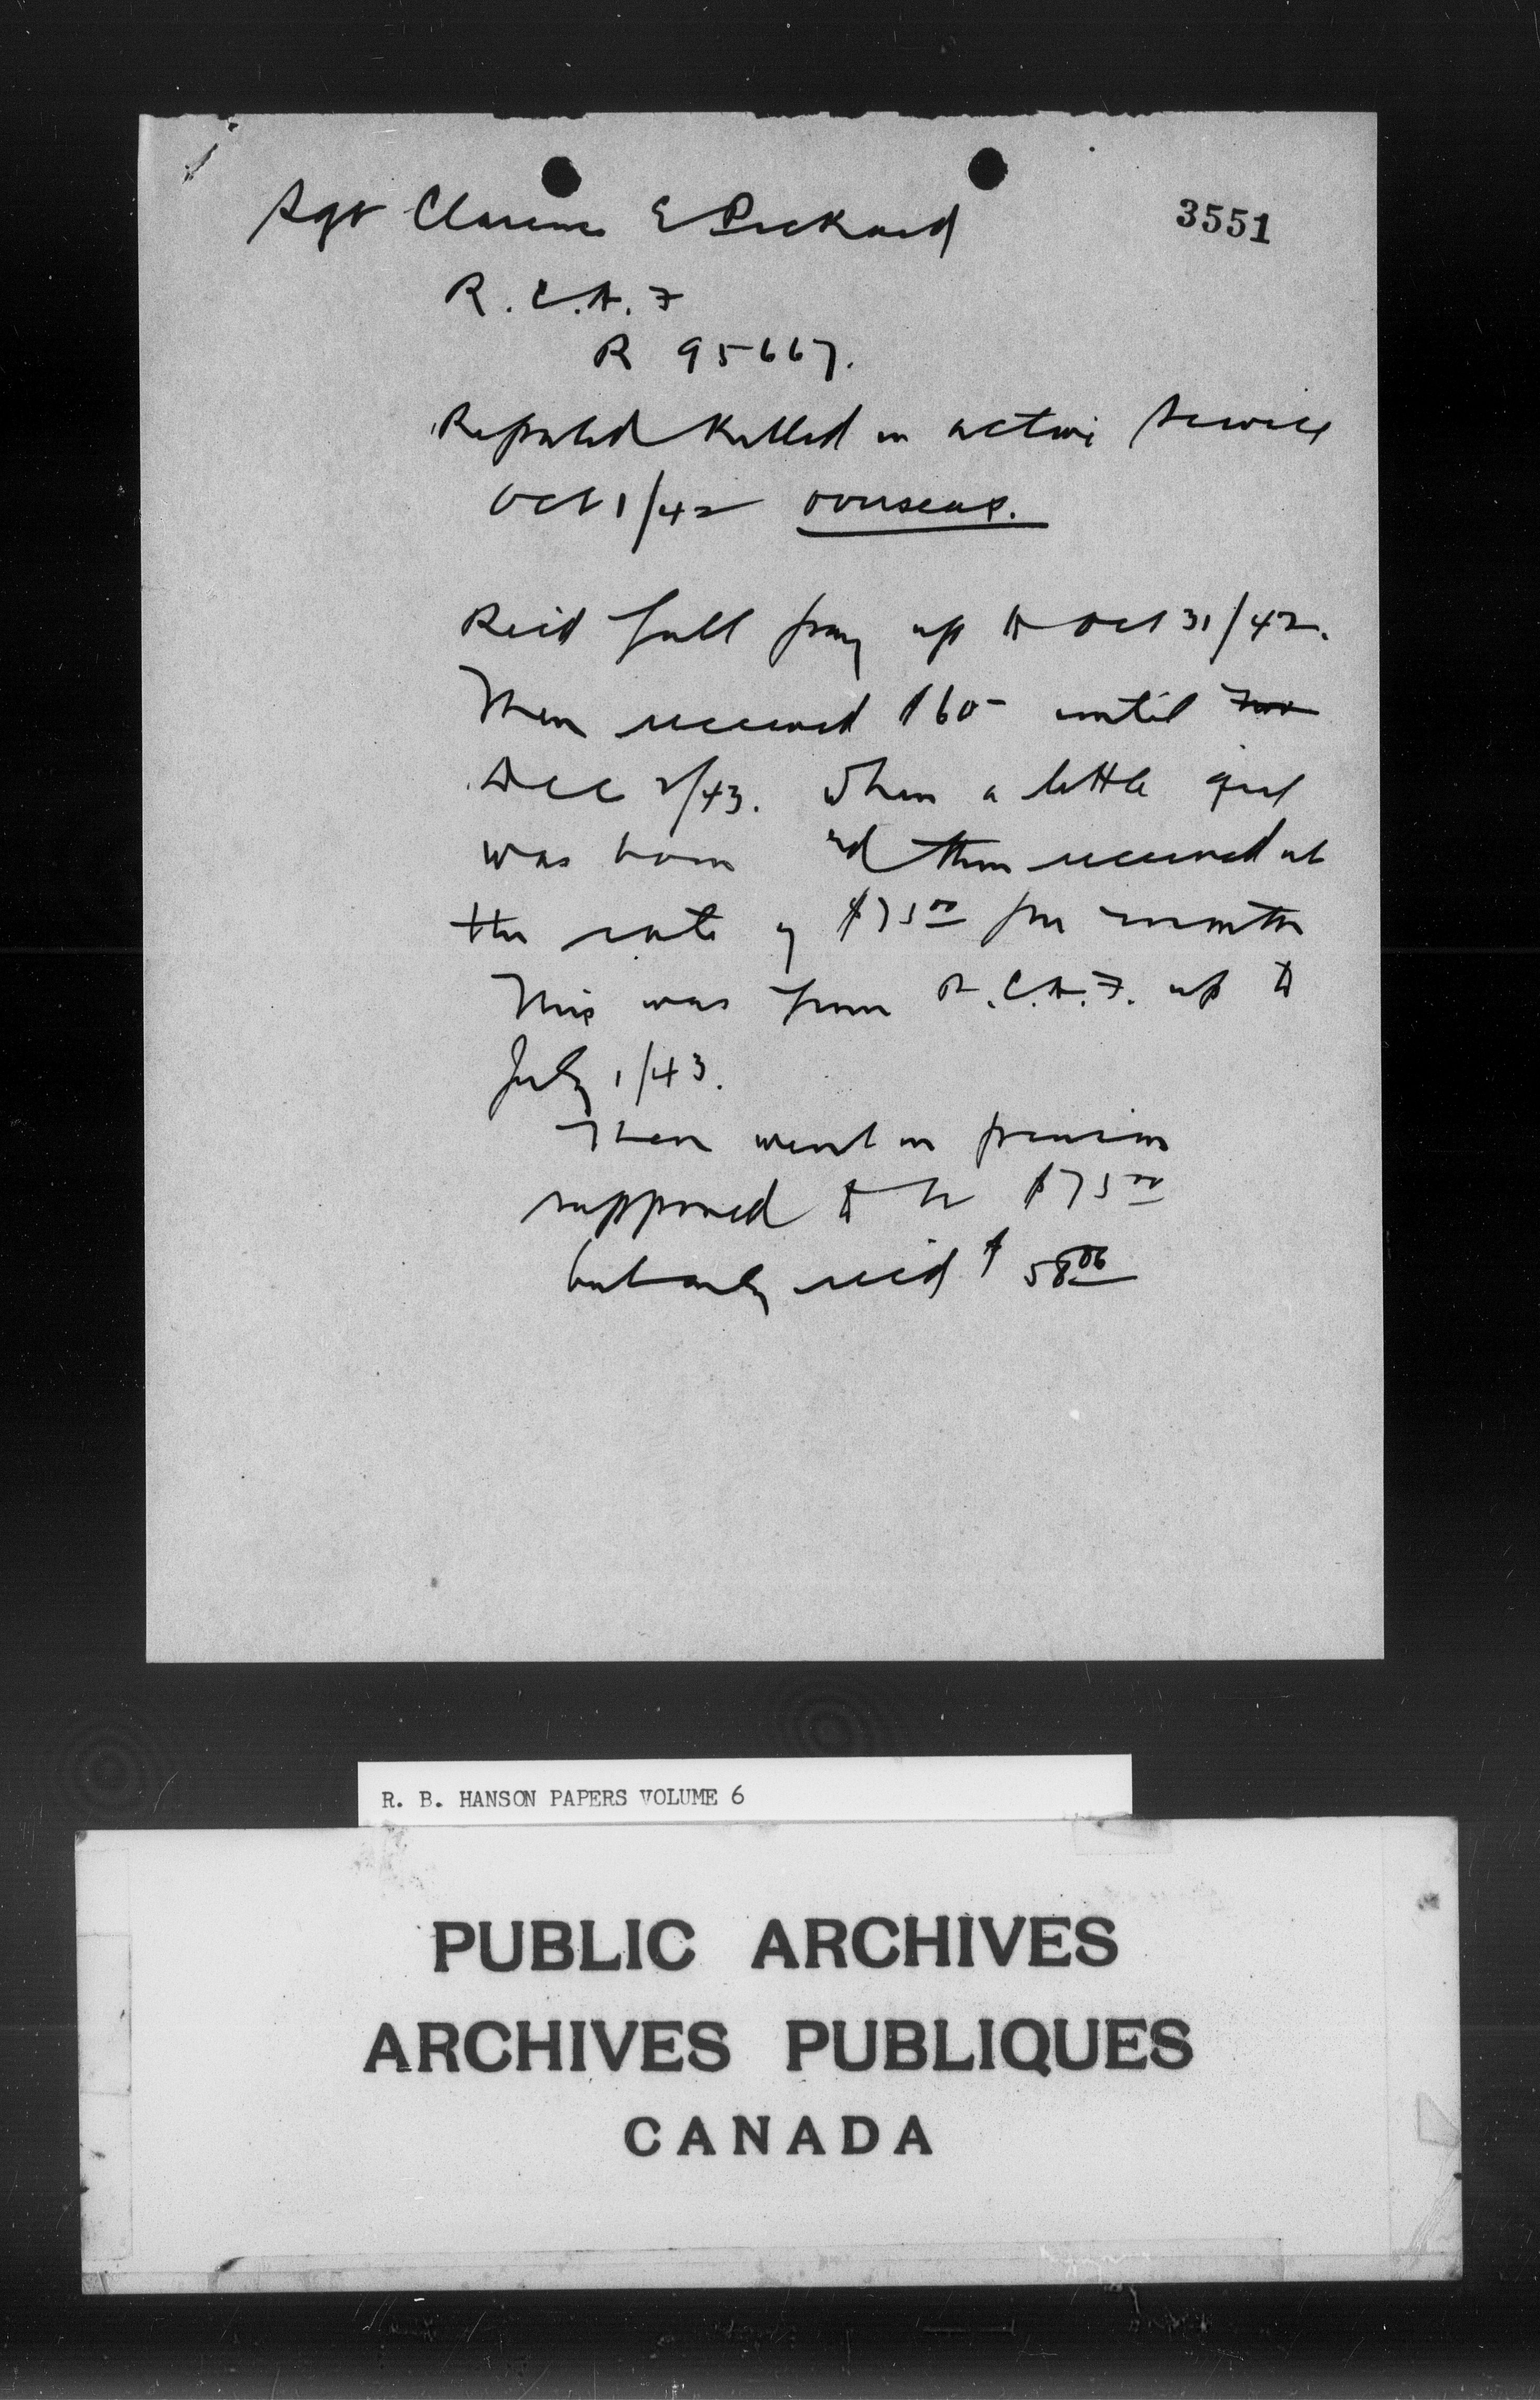 Sgt Clarence E Pickard
3551
R.C.A.F
R 95667.
Reported killed in active service
Oct 1/42 overseas.
Rec'd full pay up to Oct 31/42.
Then received $60- until
Dec 2/43. When a little girl
was born and then received at
the rate of $75.00 per month
This was from R.C.A.F. up to
July 1/43.
Then went on pension
supposed to be $75.00
but only rec'd $58.06
R. B. HANSON PAPERS VOLUME 6
PUBLIC ARCHIVES
ARCHIVES PUBLIQUES
CANADA